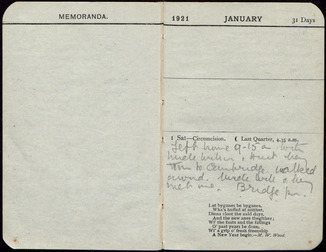 MEMORANDA.
1921 JANUARY 31 Days
1 SAT—Circumcision. ☾ Last Quarter, 4.35 a.m.
Left home 9-15 a with
Uncle &
to Cambridge walked
round. Uncle &
met me. Bridge
Let bygones be bygones,
Who's hurled at mither,
Disna cloot the auld days,
And the new anes thegither;
Wi' the faults and the failings
O' past years be done,
Wi' a grip o' fresh friendship
A New Year begin.—M. W. Wood.